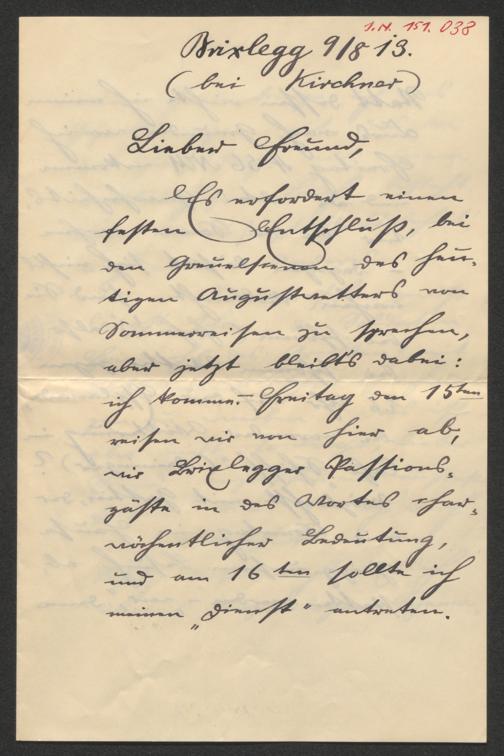 I.N. 151.038
Brixlegg 9/8 13.
(bei Kirchner)
Lieber Freund,
Es erfordert einen
festen Entschluß, bei
den Greuelscenen des heu-
tigen Augustwetters von
Sommerreisen zu sprechen,
aber jetzt bleibt's dabei:
ich komme. – Freitag den 15ten
reisen wir von hier ab,
wir Brixlegger Passions-
gäste in des Wortes char-
wöchentlicher Bedeutung,
und am 16ten sollte ich
meinen „Dienst" antreten.